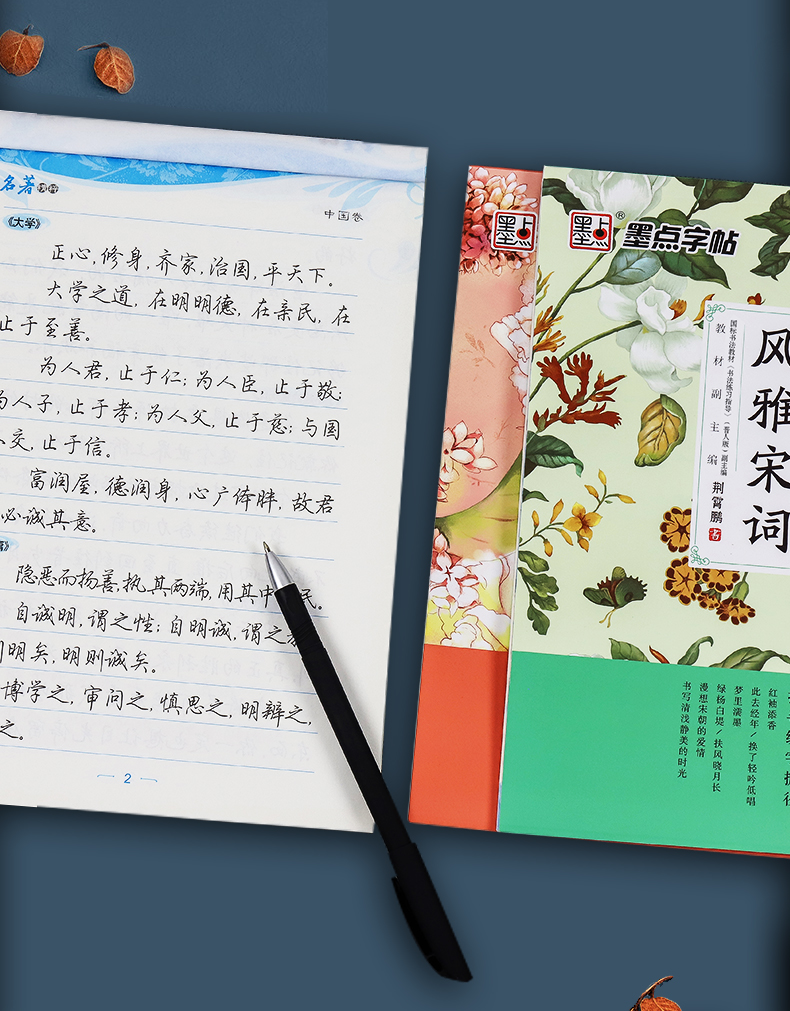 名著
中国卷
《大学》
正心,修身,齐家,治国,平天下。
大学之道,在明明德,在亲民,在
止于至善。
为人君,止于仁;为人臣,止于敬;
为人子,止于孝;为人父,止于慈;与国
人交,止于信。
富润屋,德润身,心广体胖,故君
必诚其意。
隐恶而扬善,执其两端,用其中 民。
自诚明,谓之性;自明诚,谓之
则明矣,明则诚矣。
博学之,审问之,慎思之,明辨之,
之。
2
墨点
墨点®
墨点字帖
风雅宋词
国标书法教材《书法练习指导》(晋人版)副主编
教材副主编 荆霄鹏 书
红袖添香
此去经年/换了轻吟低唱
梦里濡墨
绿杨白堤/扶风晓月长
漫想宋朝的爱情
书写清浅静美的时光